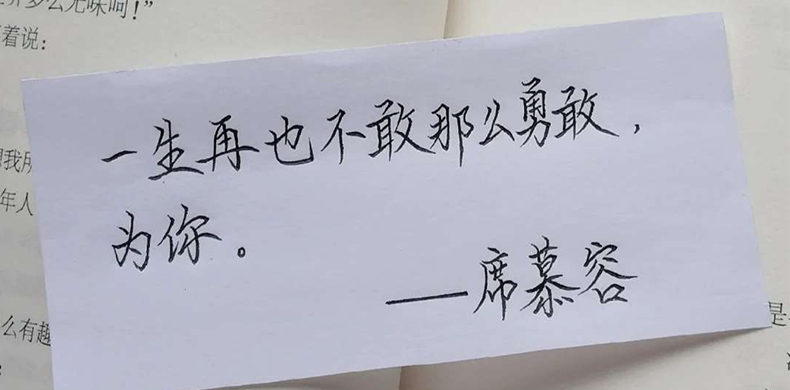 么无味呵!”
着说:
一生再也不敢那么勇敢,
为你。
——席慕容
年人
么有趣
是